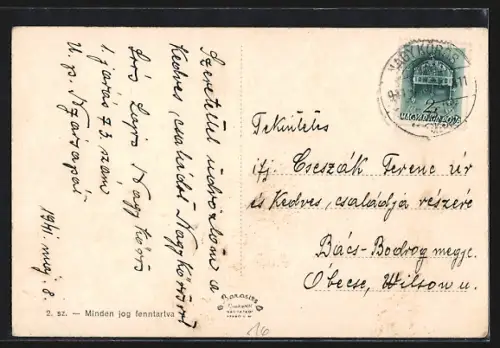 Szeretettel üdvözlöm a
Kedves családot Nagykőrösről
Lajos Nagy Kőrös
1. járás 73. szám
U. p. Nyársapát
1941. maj. 8.
2. sz. — Minden jog fenntartva
Barasits
NAGYKŐRÖS
2
MAGYAR POSTA
Tekintetes
ifj. Cseszák Ferenc úr
és Kedves családja részére
Bács-Bodrog megye.
Óbecse, Wilson u.
16